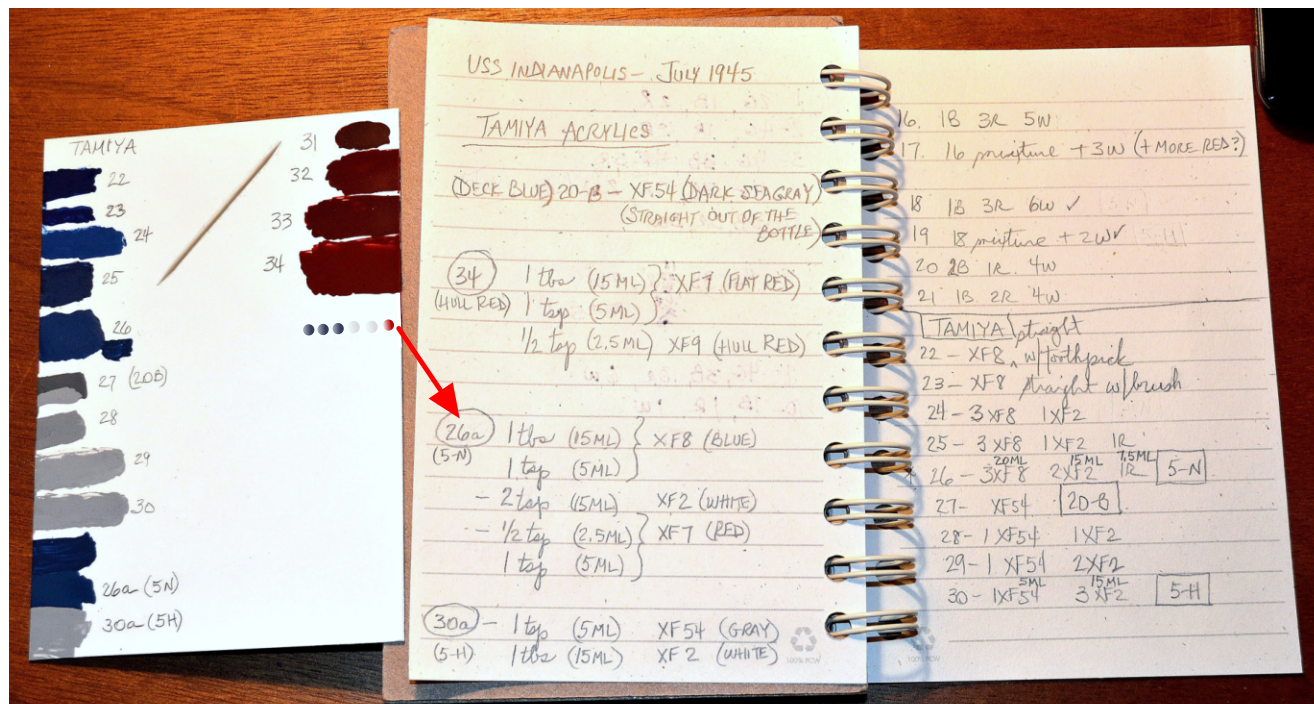 TAMIYA
22
23
24
25
26
27 (20B)
28
29
30
26a (5N)
30a (5H)
31
32
33
34
USS INDIANAPOLIS - JULY 1945
TAMIYA ACRYLICS
(DECK BLUE) 20-B - XF54 (DARK SEAGRAY)
(STRAIGHT OUT OF THE
BOTTLE)
34 1 tbs (15ML) } XF7 (FLAT RED)
(HULL RED) 1 tsp (5ML)
1/2 tsp (2.5ML) XF9 (HULL RED)
26a 1 tbs (15ML) } XF8 (BLUE)
(5-N)
1 tsp (5ML)
- 2 tsp (15ML) XF2 (WHITE)
- 1/2 tsp (2.5ML) } XF7 (RED)
1 tsp (5ML)
30a - 1 tsp (5ML) XF54 (GRAY)
(5-H) 1 tbs (15ML) XF2 (WHITE)
100% PCW
16. 1B 3R 5W
17. 16 mixture + 3W (+ MORE RED?)
18 1B 3R 6W ✓
19 18 mixture + 2W ✓
20 2B 1R 4W
21 1B 2R 4W
TAMIYA straight
22 - XF8 w/toothpick
23 - XF8 straight w/brush
24 - 3XF8 1XF2
25 - 3XF8 1XF2 1R
20ML 15ML 7.5ML
26 - 3XF8 2XF2 1R 5-N
27 - XF54 20-B
28 - 1XF54 1XF2
29 - 1 XF54 2XF2
5ML 15ML
30 - 1XF54 3XF2 5-H
100% PCW